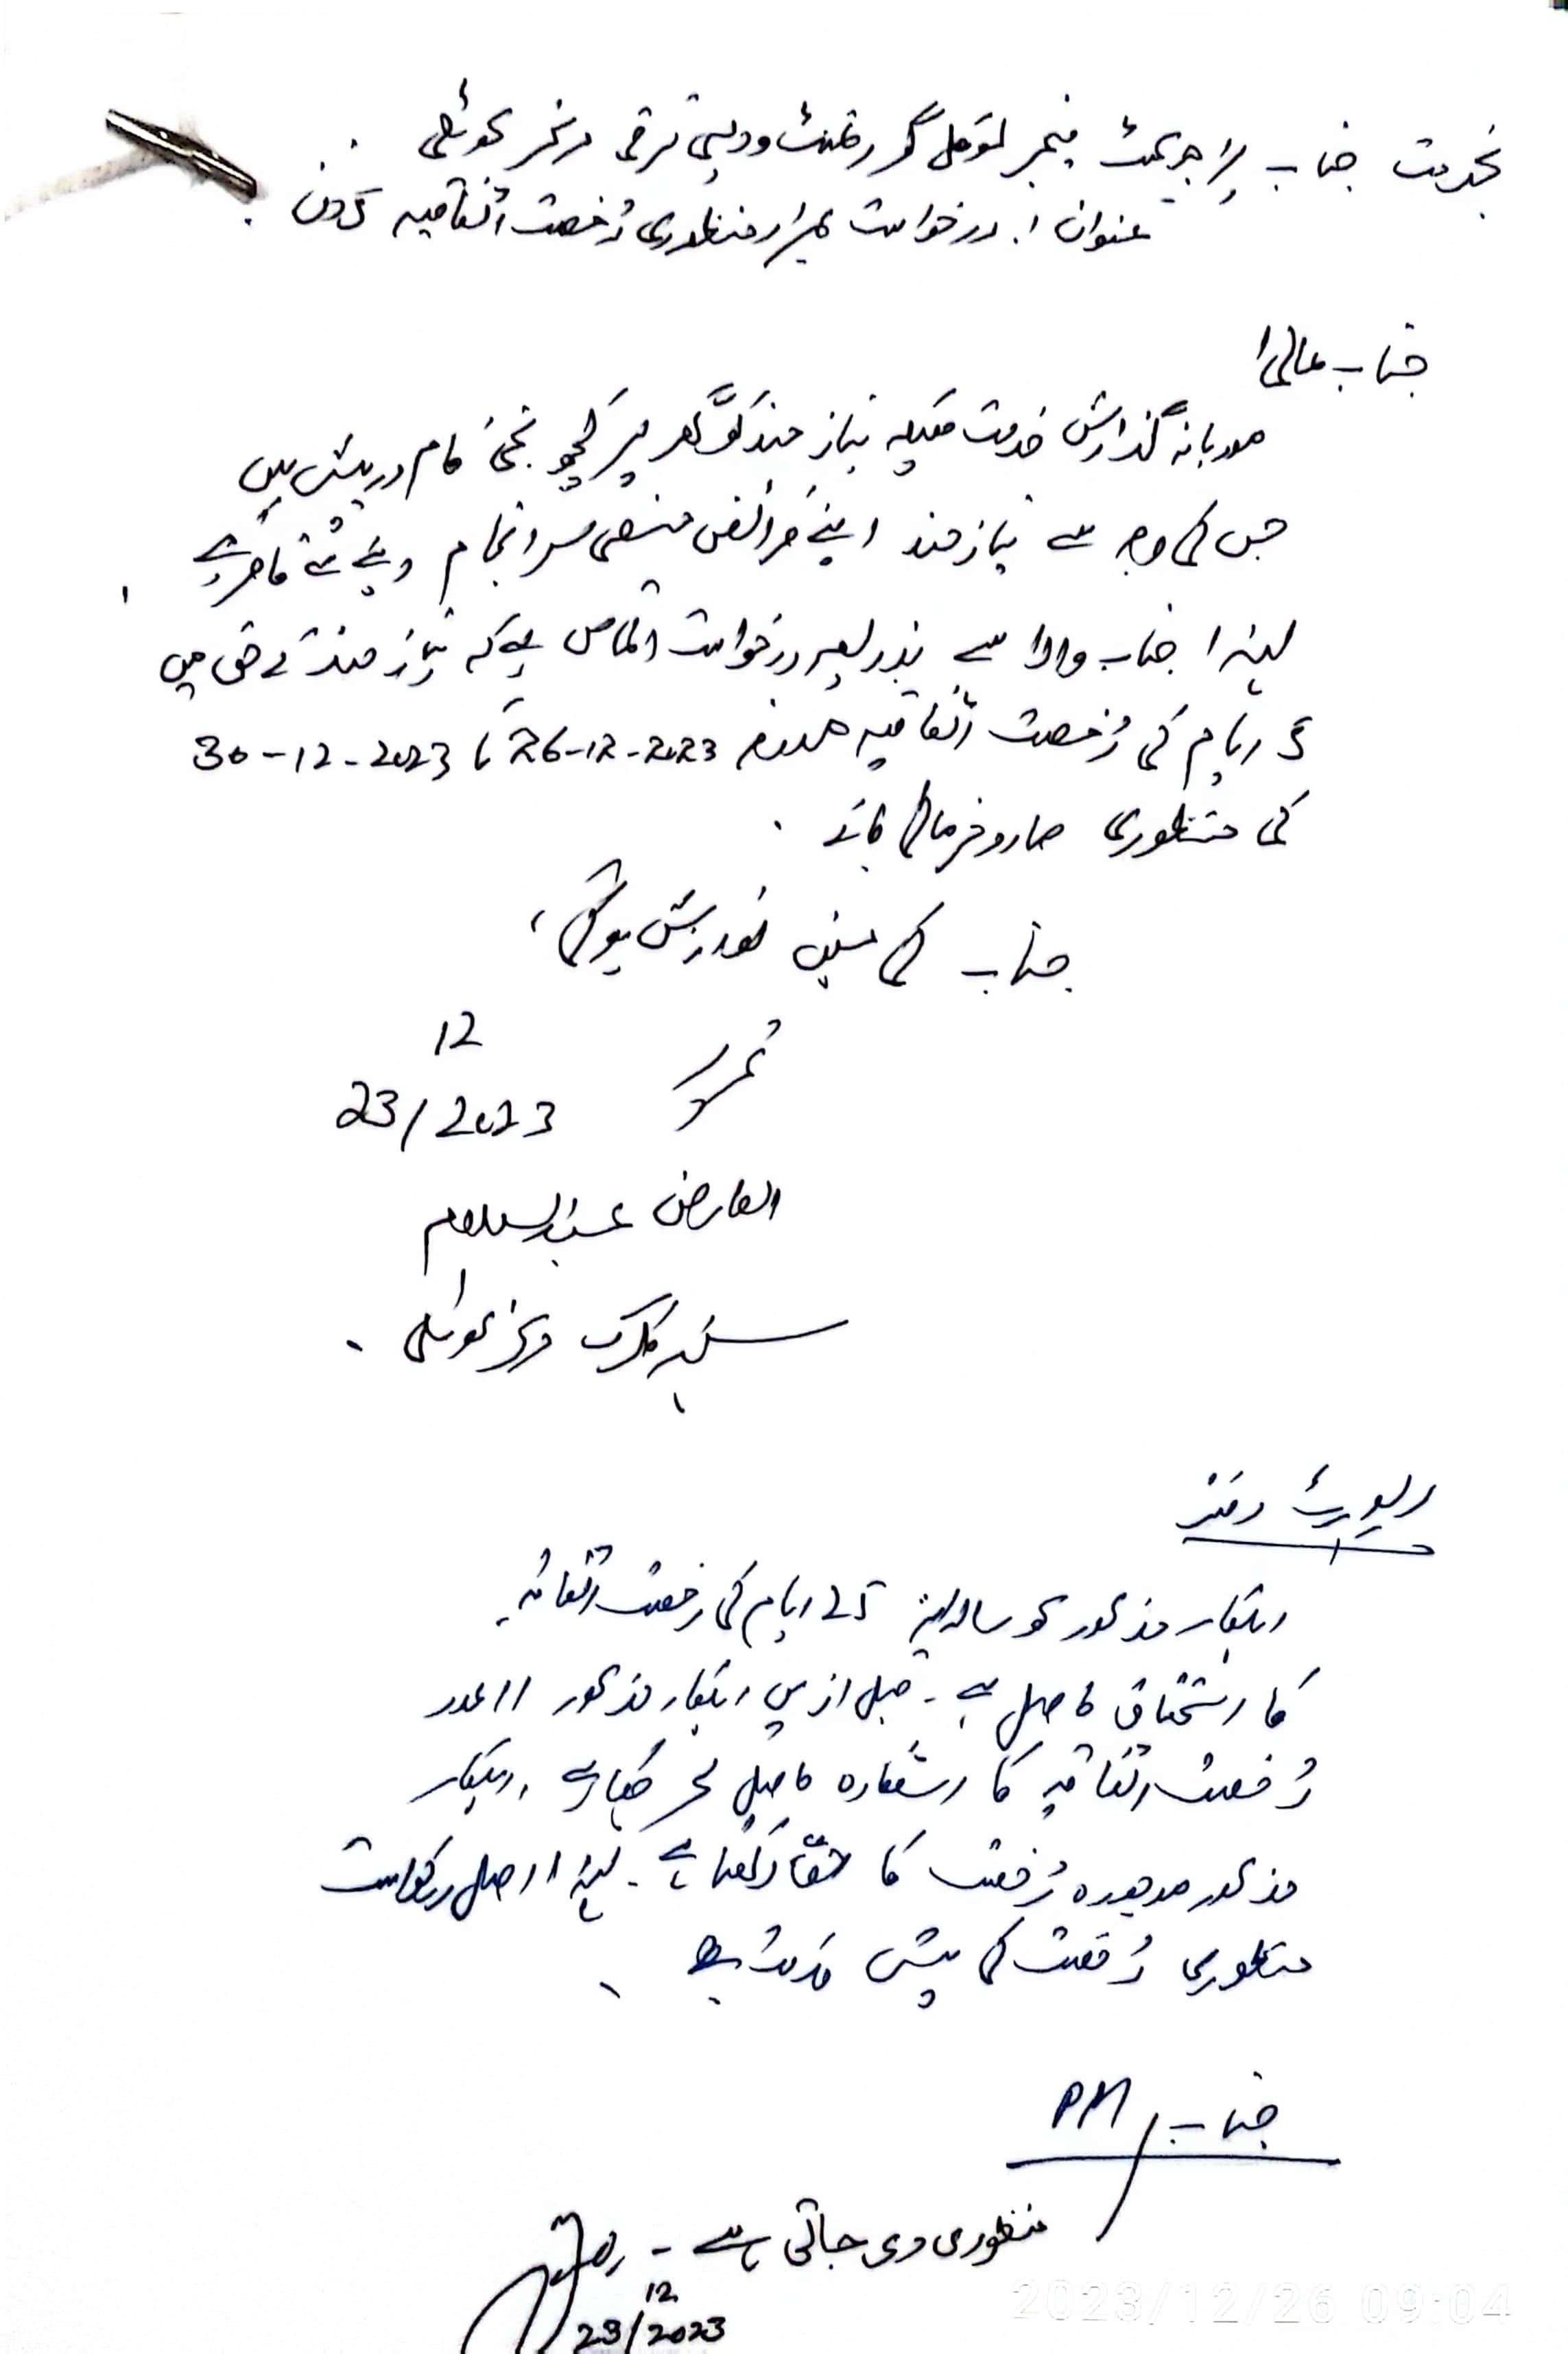 بخدمت جناب پراجیکٹ مینجر لوکل گورنمنٹ و دیہی ترقی مرکز کوٹلی
عنوان :. درخواست بمراد منظوری رُخصت اتفاقیہ دن .
جناب عالی!
مودبانہ گذارش خدمت میکہ نیاز مند کو گھر پر کچھ نجی کام درپیش ہیں
جس کی وجہ سے نیاز مند اپنے فرائض منصبی سر انجام دینے سے قاصر ہے
لہذا جناب والا سے بذریعہ درخواست التماس ہے کہ نیاز مند کے حق میں
ایام کی رُخصت اتفاقیہ 26-12-2023 تا 30-12-2023
کی منظوری صادر فرمائی جائے .
جناب کی عین نوازش ہوگی
تحریر 23/12/2023
العارض عبدالسلام
سنیئر کلرک مرکز کوٹلی .
رپورٹ دفتر
اہلکار مذکور کو سالانہ 25 ایام کی رخصت اتفاقیہ
کا استحقاق حاصل ہے ۔ قبل ازیں اہلکار مذکور 11 عدد
رُخصت اتفاقیہ کا استفادہ حاصل کر چکا ہے . اہلکار
مذکور رُخصت کا حق رکھتا ہے ۔ لہذا اصل درخواست
منظوری رُخصت کی پیش خدمت ہے
جناب PM
منظوری دی جاتی ہے ۔
23/12/2023
2023/12/26 09:04